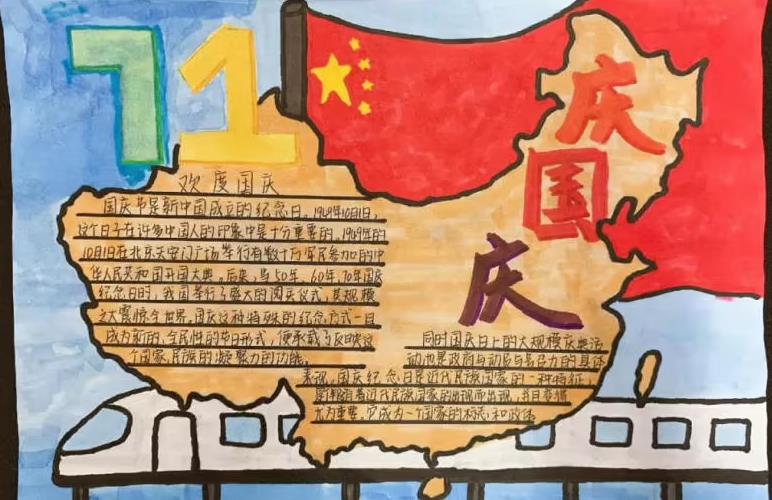 71
庆
国
庆
欢度国庆
国庆节是新中国成立的纪念日。1949年10月1日,
这个日子在许多中国人的印象中是十分重要的。1949年的
10月1日在北京天安门广场举行有数十万军民参加的中
华人民共和国开国大典。后来,每50年、60年、70年国庆
纪念日时,我国举行了盛大的阅兵仪式,其规模
之大震惊全世界。国庆这种特殊的纪念方式一旦
成为新的、全民性的节日形式,便承载了反映这
个国家、民族的凝聚力的功能。
同时国庆日上的大规模庆典活
动也是政府动员与号召力的具体
表现。国庆纪念日是近代民族国家的一种特征
是伴随着近代民族国家的出现而出现,并且变得
尤为重要,它成为一个国家的标志和政体